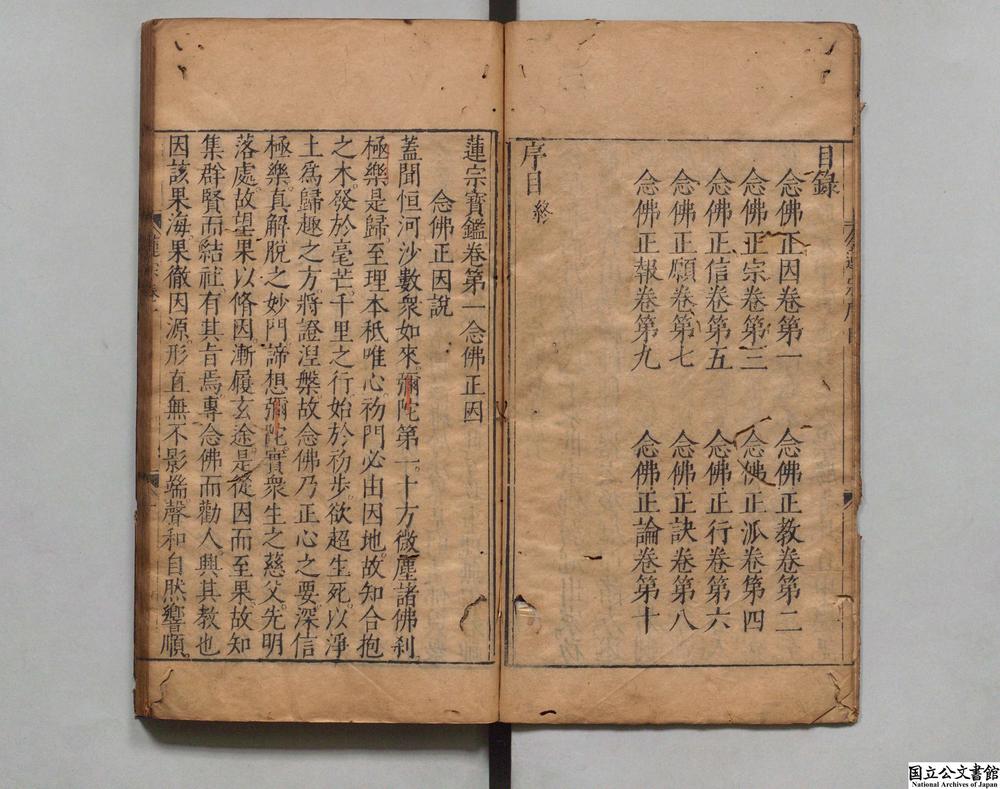 目録
念佛正因卷第一　念佛正教卷第二
念佛正宗卷第三　念佛正派卷第四
念佛正信卷第五　念佛正行卷第六
念佛正願卷第七　念佛正訣卷第八
念佛正報卷第九　念佛正論卷第十
序目終
蓮宗寳鑑卷第一　念佛正因
念佛正因說
蓋聞恒河沙數衆如來彌陀第一十方微塵諸佛刹
極樂是歸至理本祇唯心初門必由因地故知合抱
之木發於毫芒千里之行始於初步欲超生死以淨
土爲歸趣之方將證涅槃故念佛乃正心之要深信
極樂真解脫之妙門諦想彌陀實衆生之慈父先明
落處故望果以脩因漸履玄途是從因而至果故知
集群賢而結社有其旨焉專念佛而勸人興其教也
因該果海果徹因源形直無不影端聲和自然響順
国立公文書館
National Archives of Japan